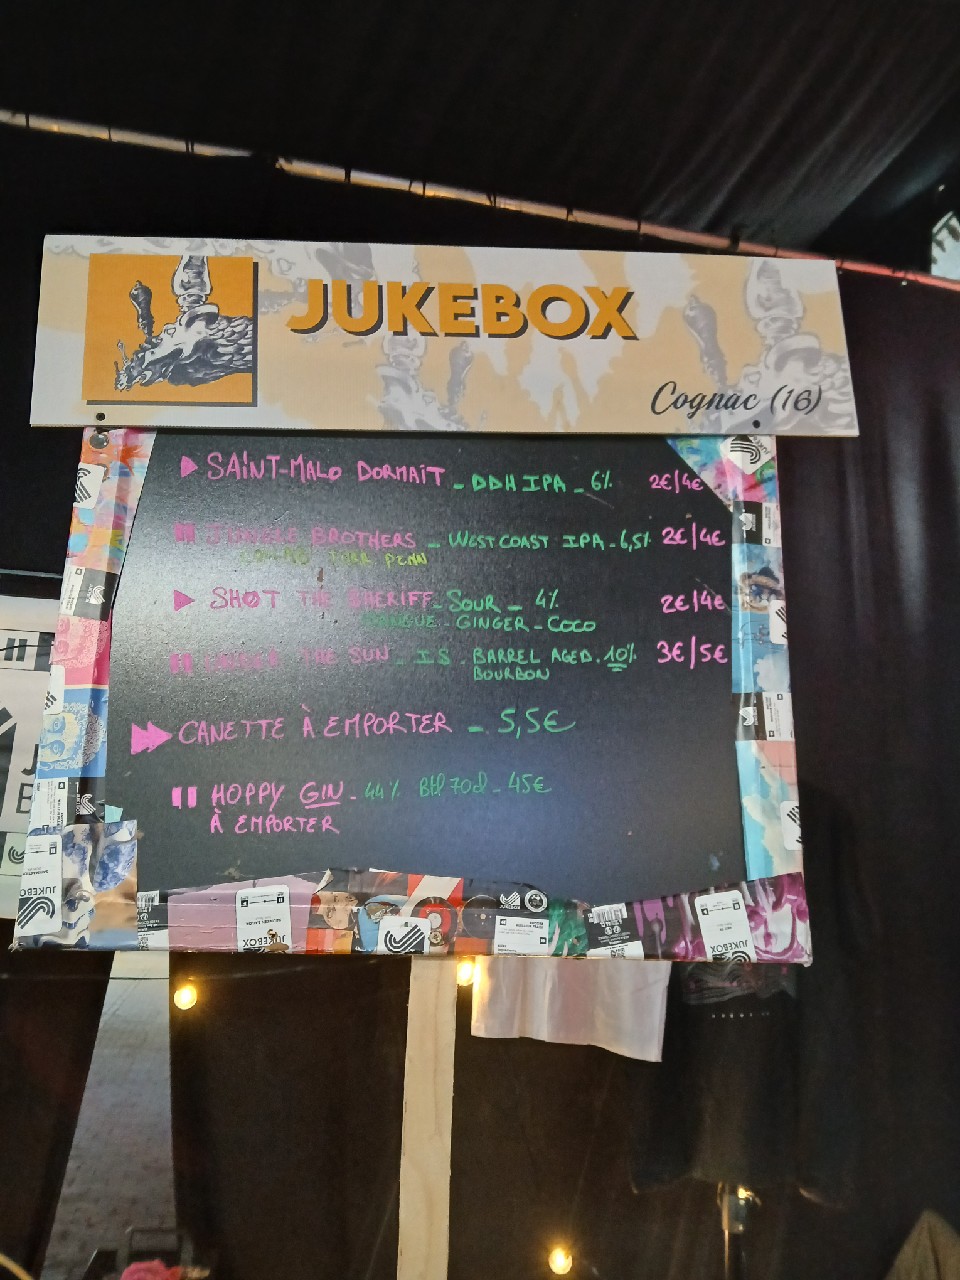 JUKEBOX
Cognac (16)
SAINT-MALO DORMAIT - DDH IPA - 6% 2€/4€
JUNGLE BROTHERS - WEST COAST IPA - 6,5% 2€/4€
PENN
SHØT THE SHERIFF - SOUR - 4% 2€/4€
MANGUE - GINGER - COCO
THE SUN - I.S. BARREL AGED. 10% 3€/5€
BOURBON
CANETTE À EMPORTER - 5,5€
HOPPY GIN - 44% Btl 70cl - 45€
À EMPORTER
JUKEBOX
JUKEBOX